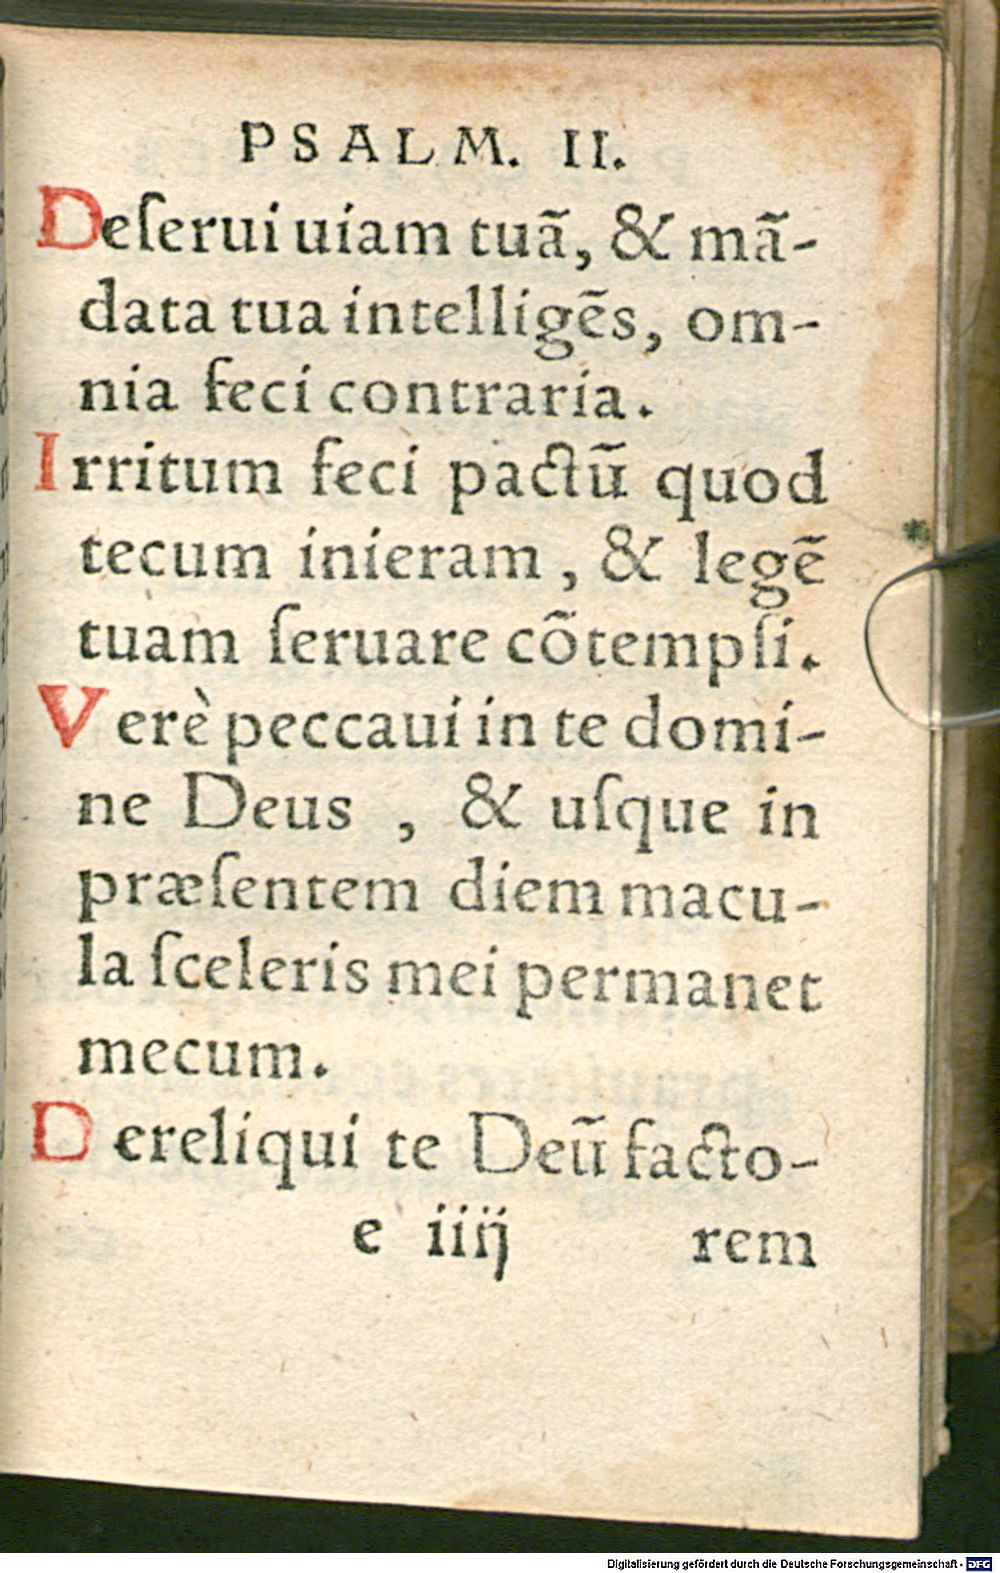 PSALM. II.
Deſerui uiam tuã, & mã-
data tua intelligẽs, om-
nia feci contraria.
Irritum feci pactũ quod
tecum inieram, & legẽ
tuam ſeruare cõtempſi.
Verè peccaui in te domi-
ne Deus , & uſque in
præſentem diem macu-
la ſceleris mei permanet
mecum.
Dereliqui te Deũ facto-
e iiij rem
Digitalisierung gefördert durch die Deutsche Forschungsgemeinschaft - DFG